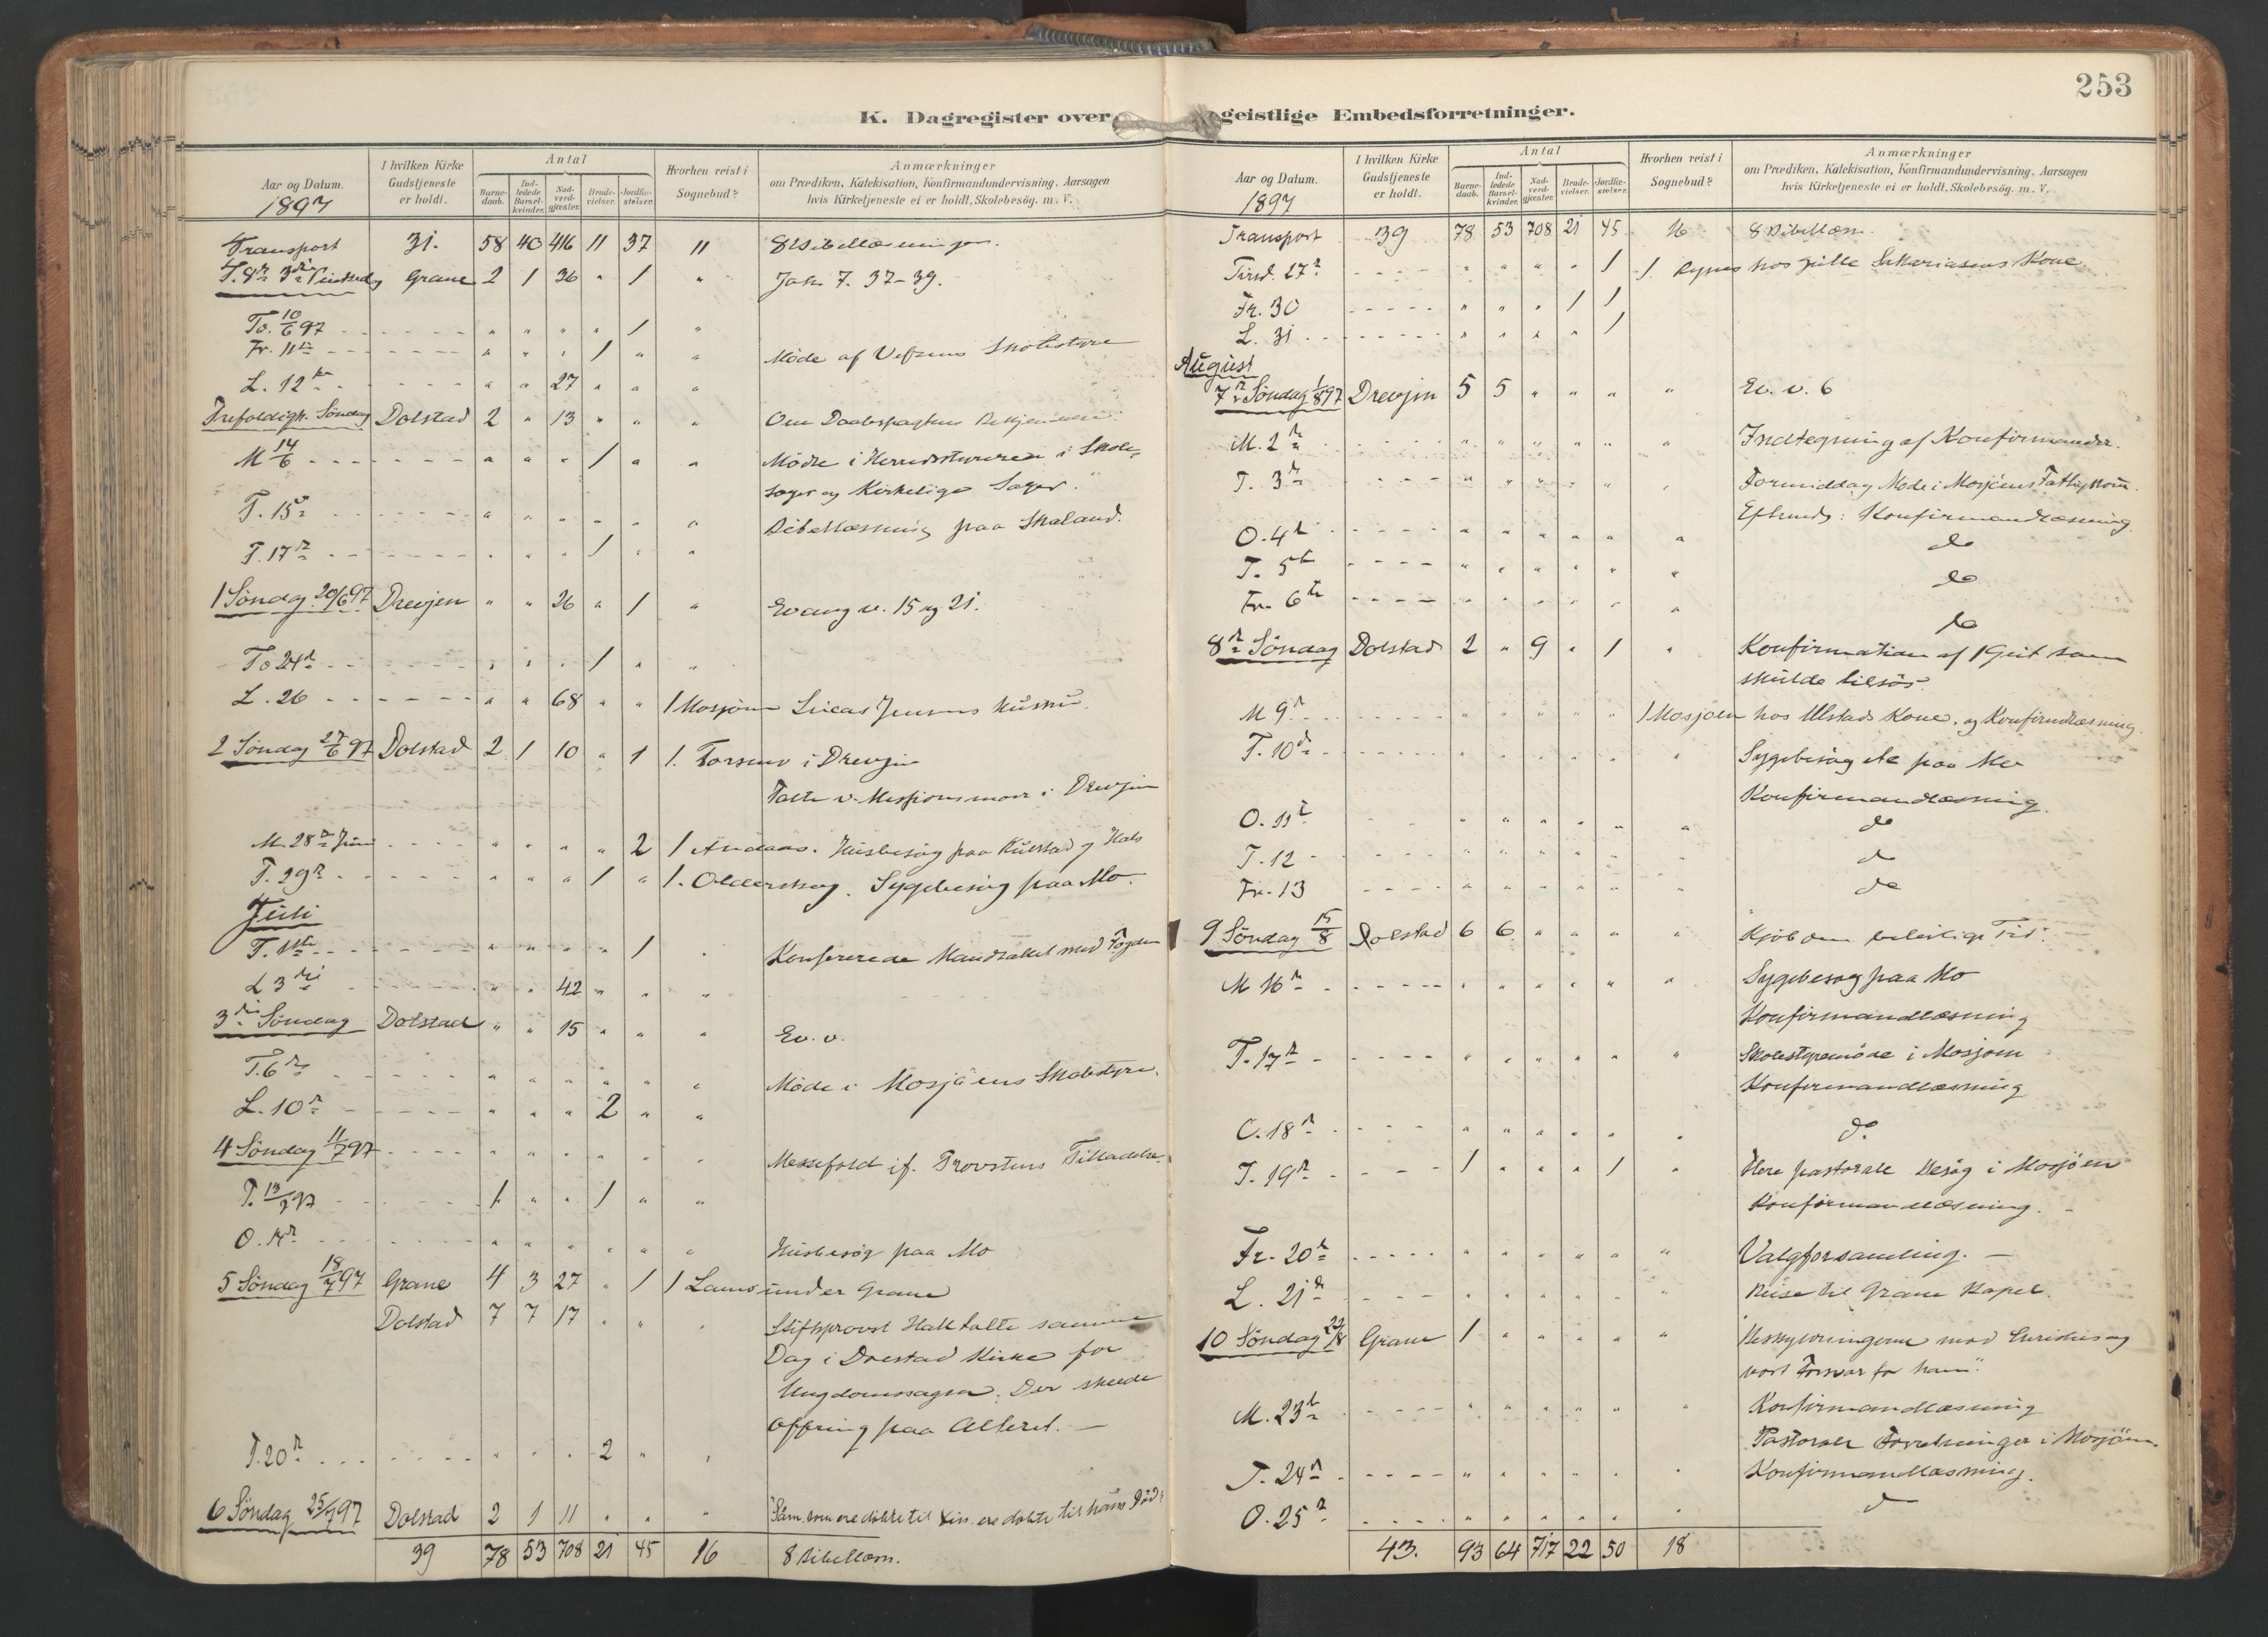 253
K. Dagregister over geistlige Embedsforretninger.
Aar og Datum. 1897 | I hvilken Kirke Gudstjeneste er holdt. | Antal | Barnedaab. | Indledede Barselkvinder. | Nadverdgjæster. | Brudevielser. | Jordfæstelser. | Hvorhen reist i Sognebud? | Anmærkninger om Prædiken, Katekisation, Konfirmandundervisning, Aarsagen hvis Kirketjeneste ei er holdt, Skolebesøg. m. V.
Transport 31. 58 40 416 11 37 11 8 Bibellæsninger.
T. 8de 3die Pintsedag Grane 2 1 36 " 1 " Joh. 7. 37-39.
To. 10/6 97 " " " " 1 "
Fr. 11te " " " 1 " " Møde af Vefsens Skolestyre
L. 12te " " 27 " " "
Trefoldigh. Søndag Dolstad 2 " 13 " " " Om Daabspagtens
M 14/6 " " " 1 " " Møde i Herredsstyret i Skole-
sager og Kirkelige Sager.
T. 15de " " " " " " Bibellæsning paa Skaland.
T. 17de " " " 1 " "
1 Søndag 20/6 97 Drevjen " " 26 " 1 " Evang v. 15 og 21.
To 24de " " " 1 " "
L. 26 " " 68 " " 1 Mosjøen Lucas Jensens Hustru.
2 Søndag 27/6 97 Dolstad 2 1 10 " 1 1. Forsmo i Drevjen
Talte v. Missionsmøde i Drevjen
M. 28de Juni " " " " 2 1 Andaas. Husbesøg paa Kulstad og Hals
T. 29de " " " 1 " 1. Olderskog. Sygebesøg paa Mo.
Juli
T. 1ste " " " " 1 " Konfererede Mandtallet med Fogden
L 3die " " 42 " " "
3die Søndag Dolstad " " 15 " " " Ev. v.
T. 6te " " " " " " Møde i Mosjøens Skolestyre.
L. 10de " " " 2 " "
4 Søndag 11/7 97 " " " " " " Messefald if. Provstens Tilladelse.
T. 13/7 97 1 " " 1 " "
O. 14de " " " " " " Husbesøg paa Mo
5 Søndag 18/7 97 Grane 4 3 27 " 1 1 under Grane
Dolstad 7 7 17 " " " Stiftsprovst Hall talte samme
Dag i Dolstad Kirke for
Ungdomssagen. Der skeede
Offring paa Alteret. —
T. 20de " " " 2 " "
6 Søndag 25/7 97 Dolstad 2 1 11 " " " "Saa. som ere døbte til Kri. ere døbte til hans Død"
39 78 53 708 21 45 16 8 Bibellæsn.
Aar og Datum. 1897 | I hvilken Kirke Gudstjeneste er holdt. | Antal | Barnedaab. | Indledede Barselkvinder. | Nadverdgjæster. | Brudevielser. | Jordfæstelser. | Hvorhen reist i Sognebud? | Anmærkninger om Prædiken, Katekisation, Konfirmandundervisning, Aarsagen hvis Kirketjeneste ei er holdt, Skolebesög. m. V.
Transport 39 78 53 708 21 45 16 8 Bibellæsn.
Tirsd. 27de " " " " 1 1. hos Zakariasens Kone.
Fr. 30 " " " 1 1
L. 31 " " " " 1
August
7de Søndag 1/8 97 Drevjen 5 5 " " " " Ev. v. 6
M. 2den " " " " " " Indtegning af Konfirmander.
T. 3die " " " " " " Formiddag Møde i Mosjøens Fattigkom.
Eftermd: Konfirmandlæsning
O. 4de " " " " " " do
T. 5te " " " " " " do
Fr. 6te " " " " " " do
8de Søndag Dolstad 2 " 9 " 1 " Konfirmation af 1 Gut som
skulde tilsøs.
M 9de " " " " " 1 Mosjøen hos Ulstads Kone, og Konfirmlæsning.
T. 10de " " " " " " Sygebesøg etc paa Mo
Konfirmandlæsning.
O. 11te " " " " " " do
T. 12 " " " " " " do
Fr. 13 " " " " " " do
9 Søndag 15/8 Dolstad 6 6 " " " " "Kjøb den beleilige Tid".
M 16de " " " " " " Sygebesøg paa Mo
Konfirmandlæsning
T. 17de " " " " " " Skolestyremøde i Mosjøen
Konfirmandlæsning
O. 18de " " " " " " do
T. 19de 1 " " " 1 " Flere pastorale Besøg i Mosjøen
Konfirmandlæsning.
Fr. 20de " " " " " " Valgforsamling. —
L. 21de " " " " " " Reise til Grane Kapel.
10 Søndag 22/8 Grane 1 " " " " " "Beskyldningerne mod Kristus og
vort Forsvar for ham".
M. 23de " " " " " " Konfirmandlæsning
Pastorale Forretninger i Mosjøen.
T. 24de " " " " " " Konfirmandlæsning.
O. 25de " " " " " " do
43. 93 64 717 22 50 18